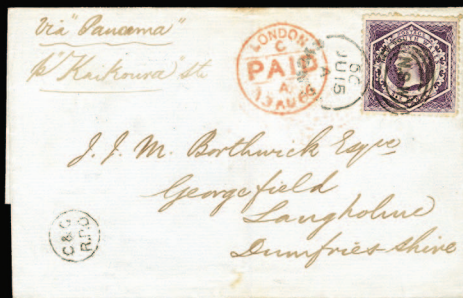 Via "Panama"
p "Kaikoura" str
LONDON
C
PAID
A
13 AU 66
JU 15
66
NSW
J. J. M. Borthwick Esqre
Georgefield
Langholme
Dumfries shire
C & C
R.P.O